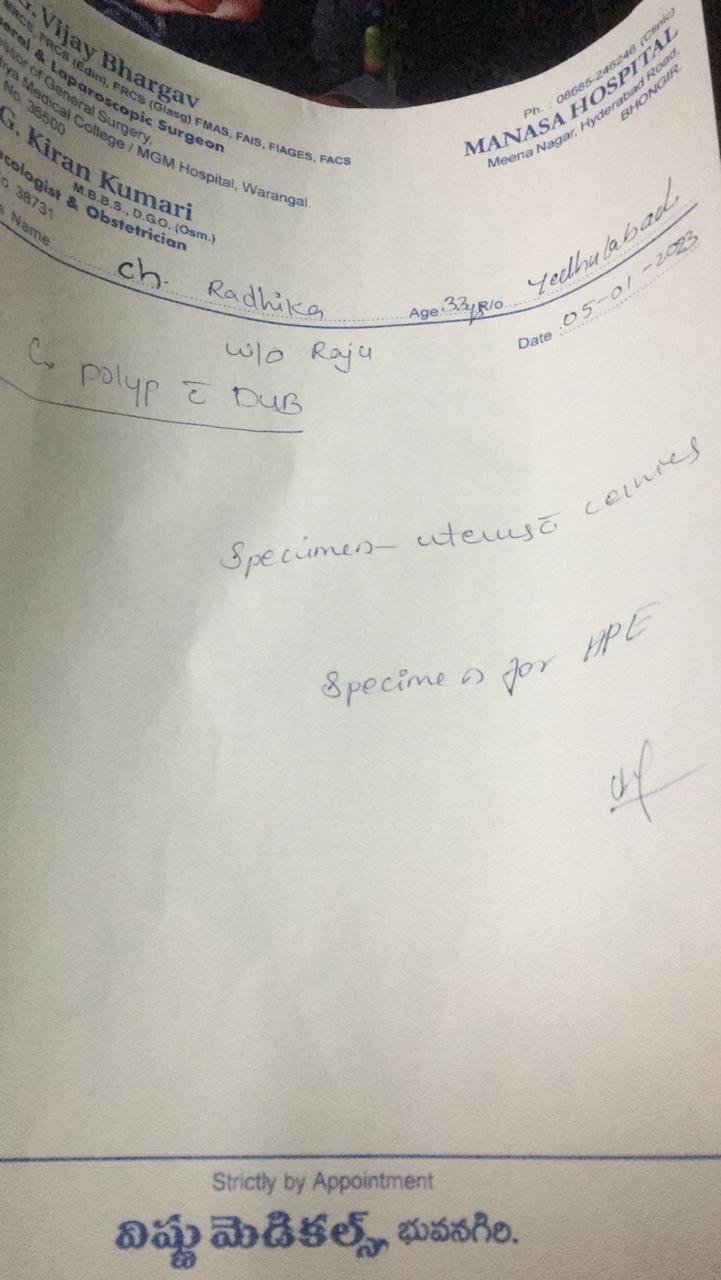 G. Vijay Bhargav
MRCS, FRCS (Edin), FRCS (Glasg) FMAS, FAIS, FIAGES, FACS
& Laparoscopic Surgeon
of General Surgery,
Medical College / MGM Hospital, Warangal.
No. 36500
G. Kiran Kumari
M.B.B.S., D.G.O. (Osm.)
& Obstetrician
38731
Ph. : 08685-246246 (Clinic)
MANASA HOSPITAL
Meena Nagar, Hyderabad Road,
BHONGIR.
Name Ch. Radhika Age 33yrs R/o Yedhulabad
w/o Raju
Date 05-01-2023
Cx polyp c̄ DUB
Specimen- uterus c̄ cervix
Specimen for HPE
Strictly by Appointment
విష్ణు మెడికల్స్, భువనగిరి.